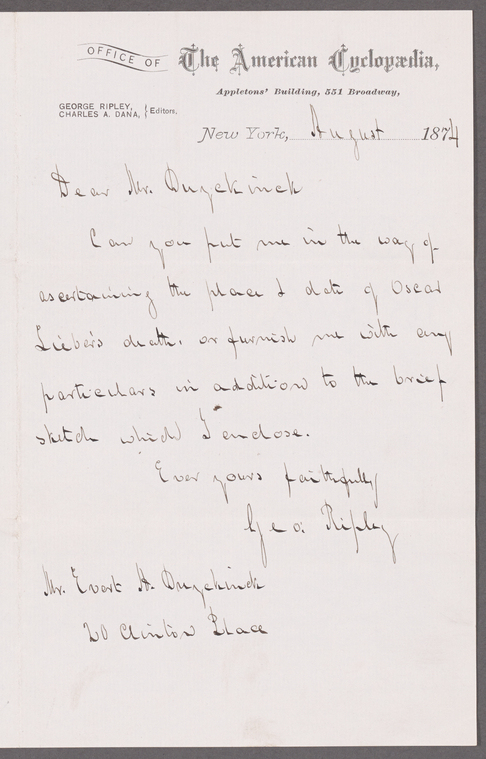 OFFICE OF The American Cyclopædia,
Appletons' Building, 551 Broadway,
GEORGE RIPLEY,
CHARLES A. DANA, } Editors.
New York, August 1874
Dear Mr. Duyckinck
Can you put me in the way of
ascertaining the place & date of Oscar
Lieber's death, or furnish me with any
particulars in addition to the brief
sketch which I enclose.
Ever yours faithfully
Geo: Ripley
Mr. Evert A. Duyckinck
20 Clinton Place